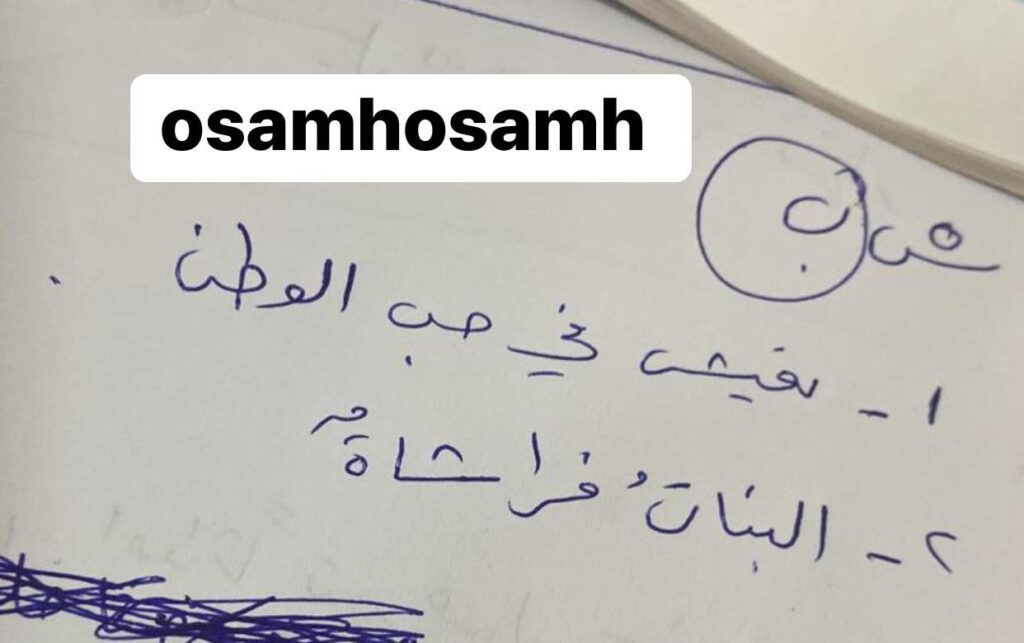 osamhosamh
ب
١ - نعيش في حب الوطن .
٢ - البناتُ فراشاةٌ